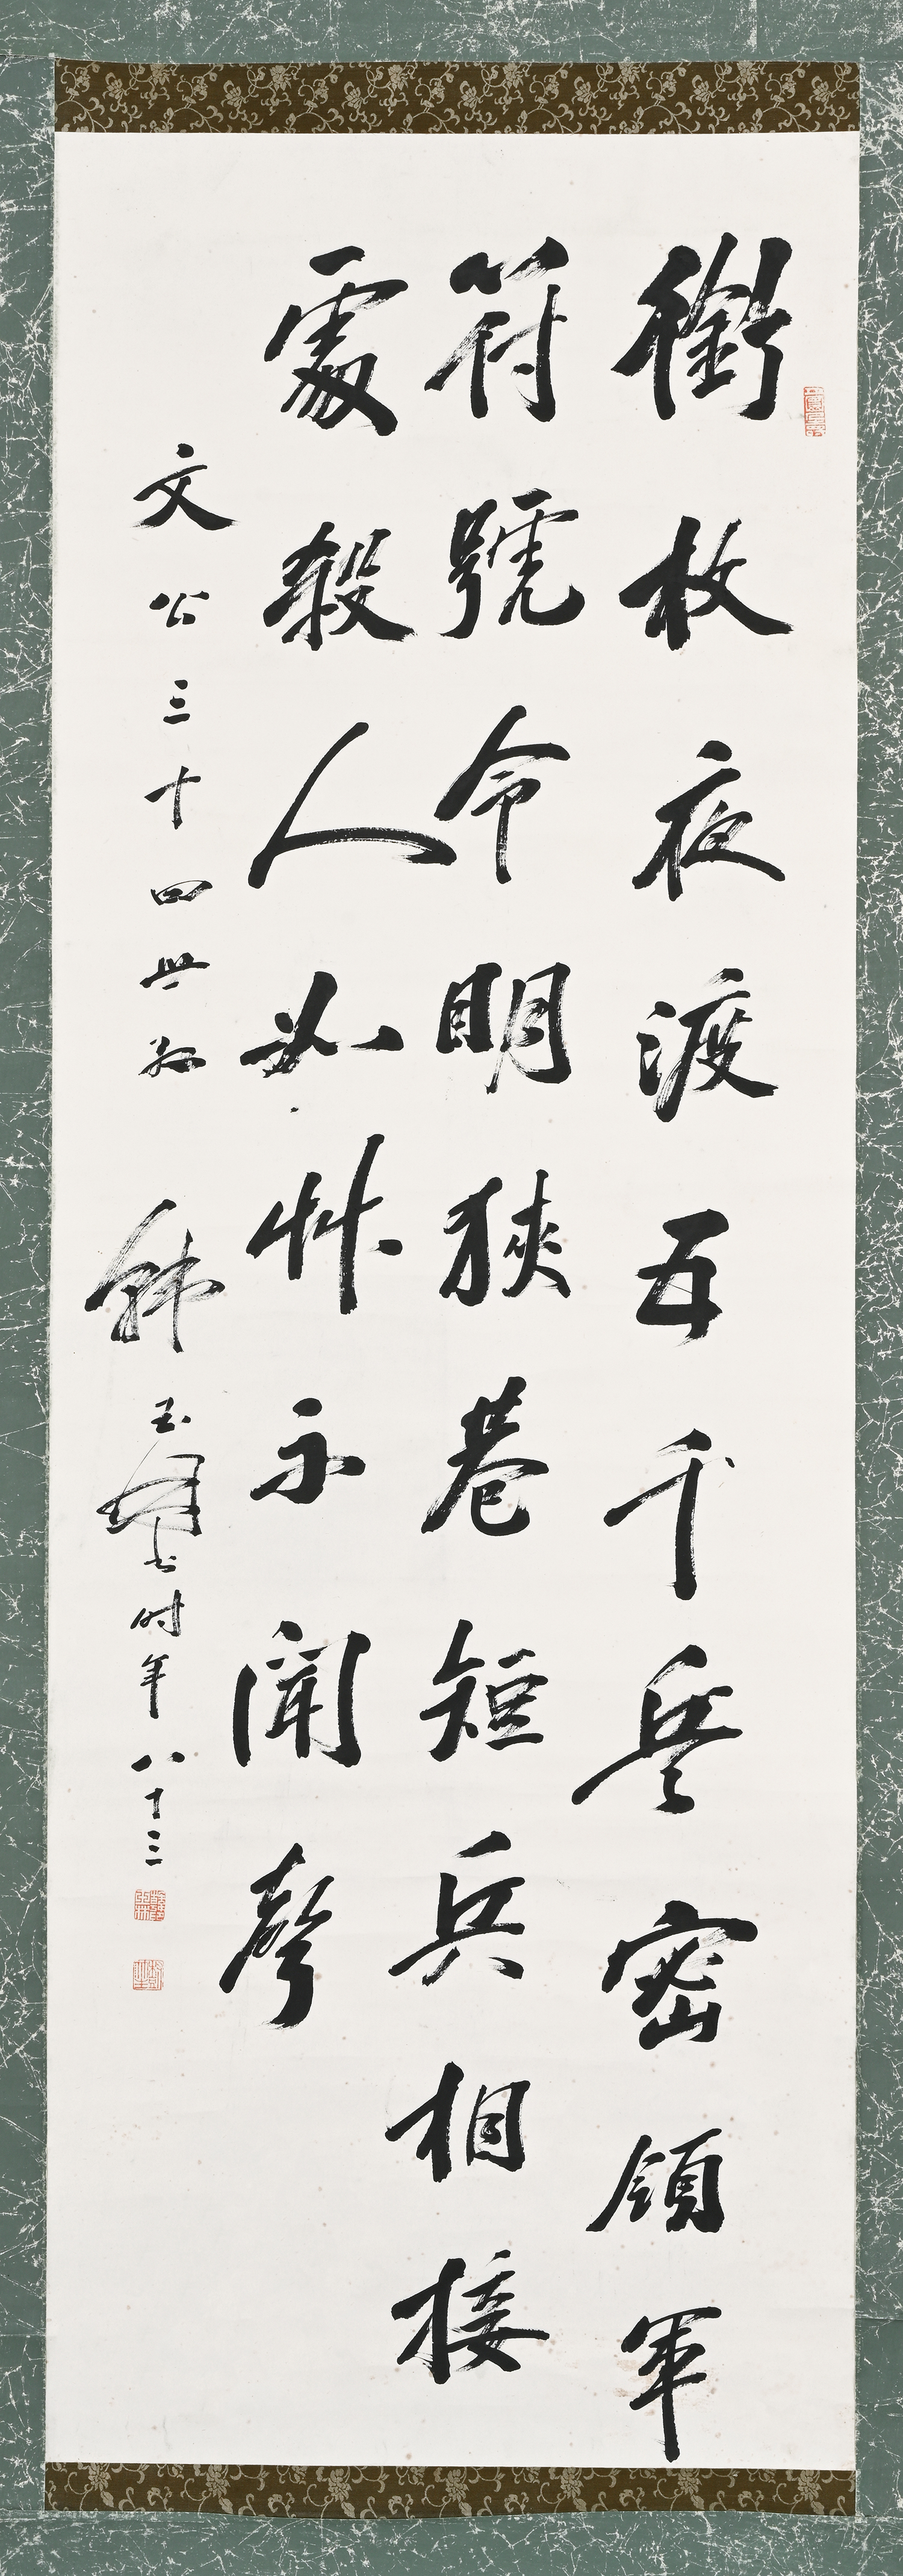 銜枚夜渡五千兵密領軍
符號令明狹巷短兵相接
處殺人如艸不聞聲
文公三十四世孫 韓玉濤書时年八十三